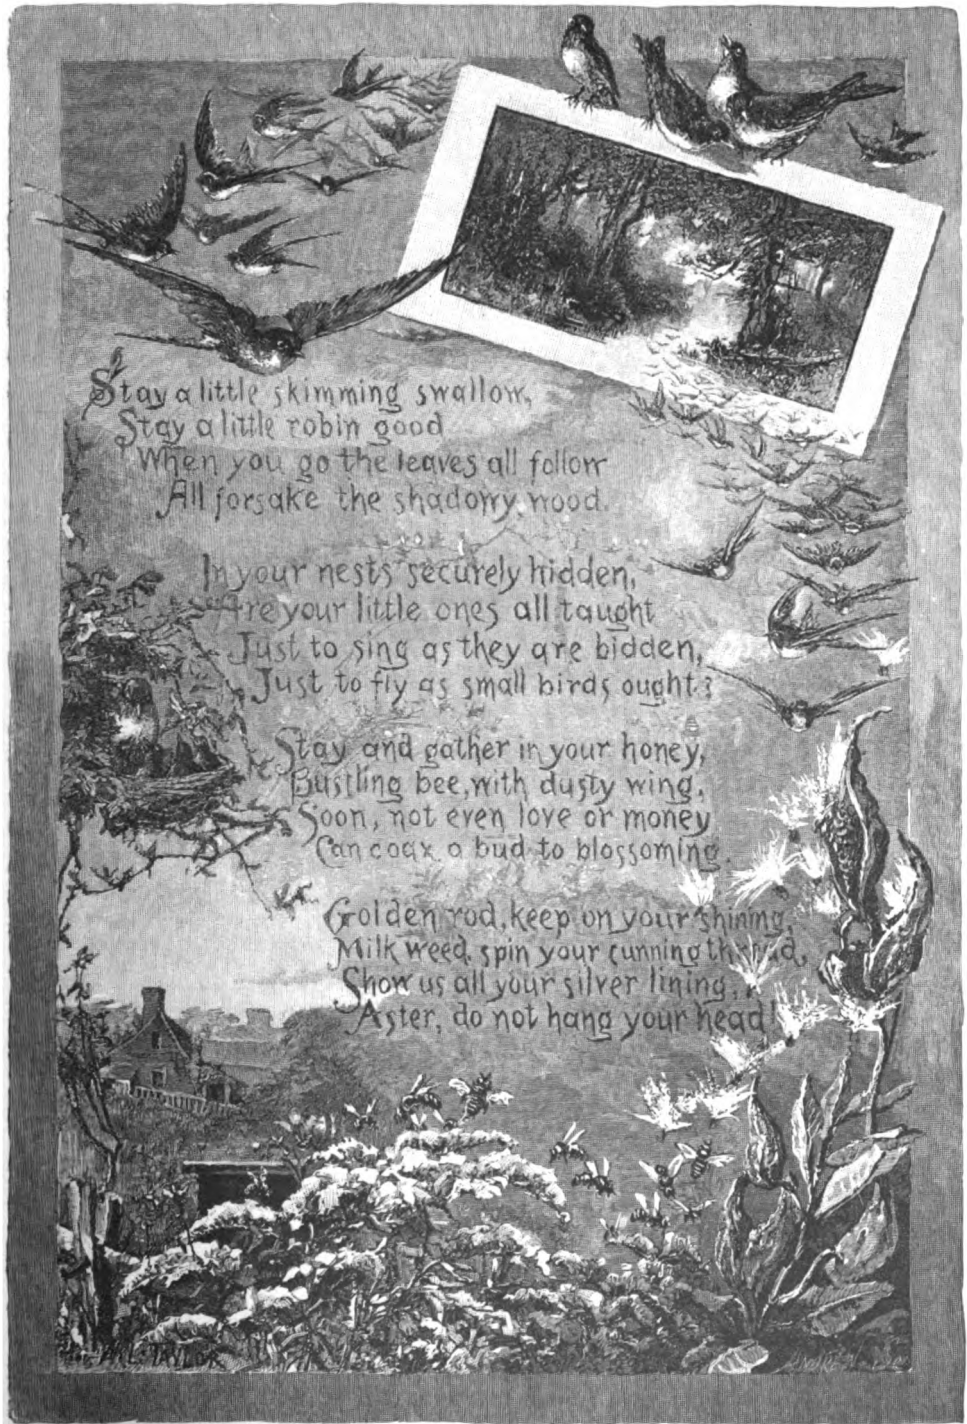 Stay a little skimming swallow,
Stay a little robin good
When you go the leaves all follow
All forsake the shadowy wood.
In your nests securely hidden,
Are your little ones all taught
Just to sing as they are bidden,
Just to fly as small birds ought?
Stay and gather in your honey,
Bustling bee, with dusty wing,
Soon, not even love or money
Can coax a bud to blossoming.
Golden rod, keep on your shining,
Milk weed, spin your cunning thread,
Show us all your silver lining,
Aster, do not hang your head!
TAYLOR